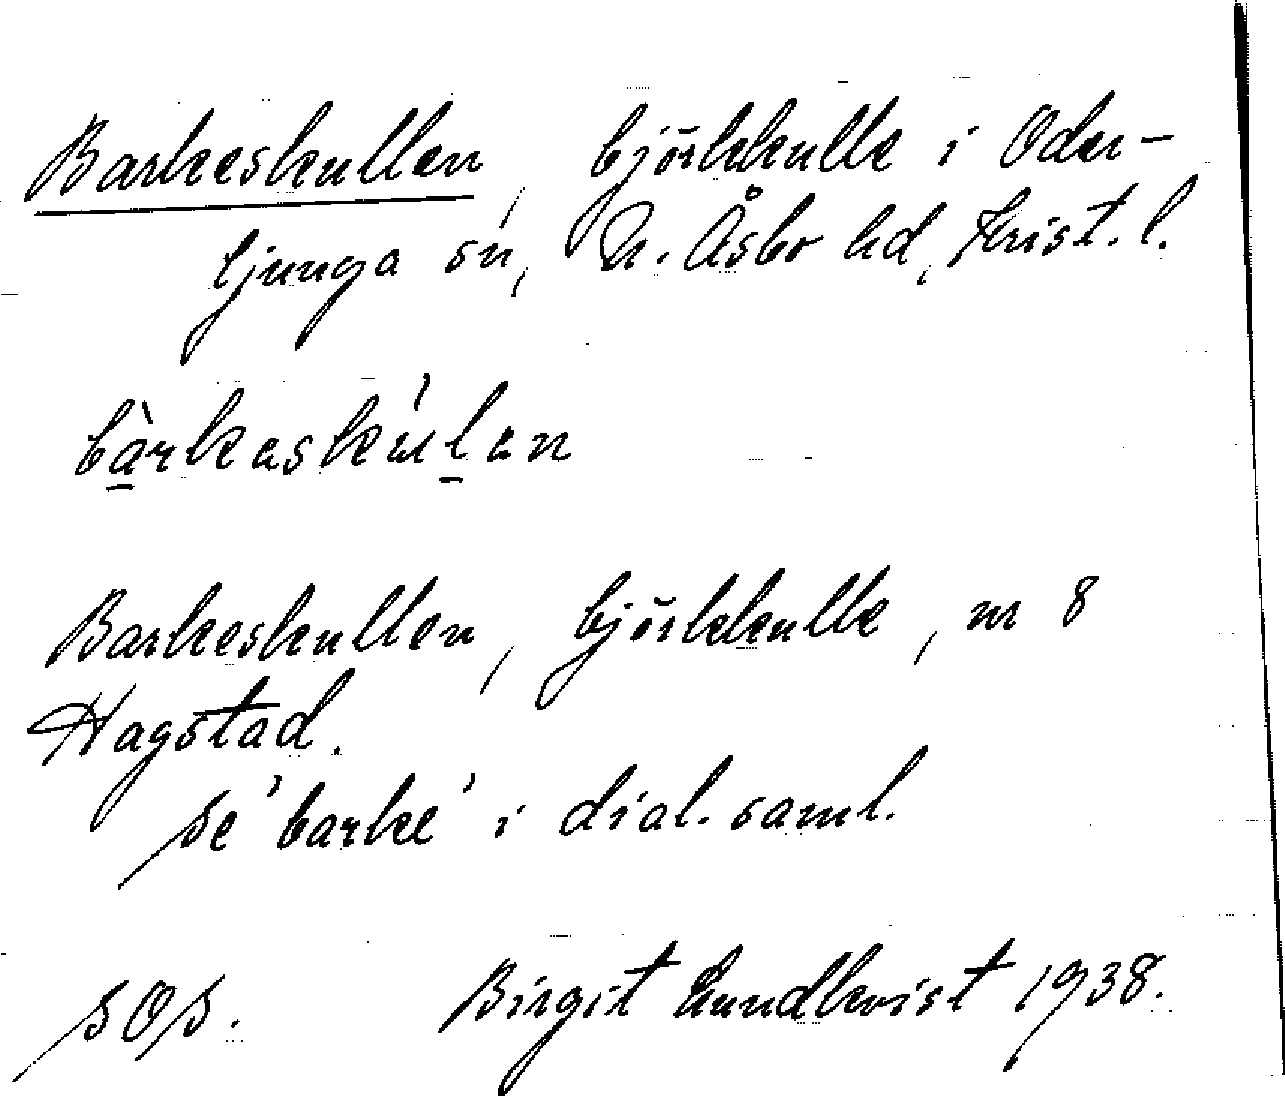 Barkeskullen, björkkulle i Oder-
ljunga sn, N. Åsbo hd, Krist. l.
bàrkaskúlan
Barkeskullen, björkkulle, nr 8
Hagstad.
Se 'barke' i dial. saml.
SOS. Birgit Lundkvist 1938.